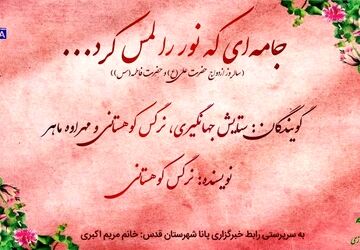 جامه‌ای که نور را لمس کرد...
(سالروز ازدواج حضرت علی(ع) و حضرت فاطمه(س))
گویندگان: ستایش جهانگیری، نرگس کوهستانی و مهراوه ماهر
نویسنده: نرگس کوهستانی
به سرپرستی رابط خبرگزاری پانا شهرستان قدس: خانم مریم اکبری